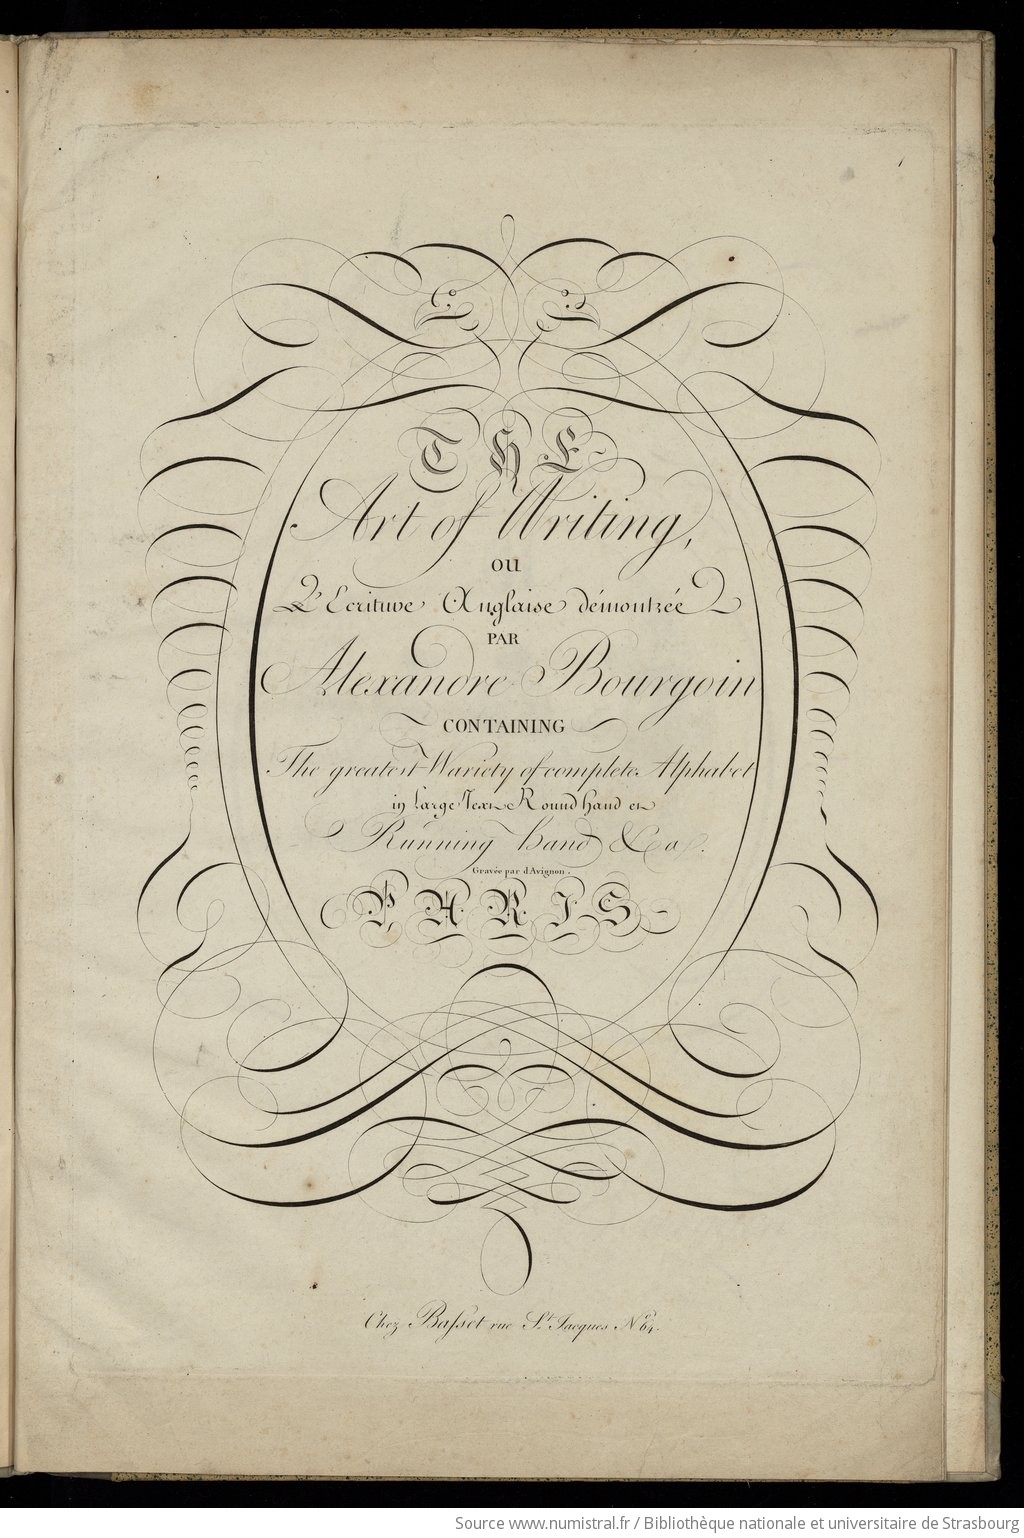 1
THE
Art of Writing,
OU
L'Ecriture Anglaise démontrée
PAR
Alexandre Bourgoin
CONTAINING
The greatest Wariety of complete Alphabet
in large Text Round hand et
Running hand &ca.
Gravée par d'Avignon.
PARIS
Chez Basset rue St. Jacques No. 64.
Source www.numistral.fr / Bibliothèque nationale et universitaire de Strasbourg